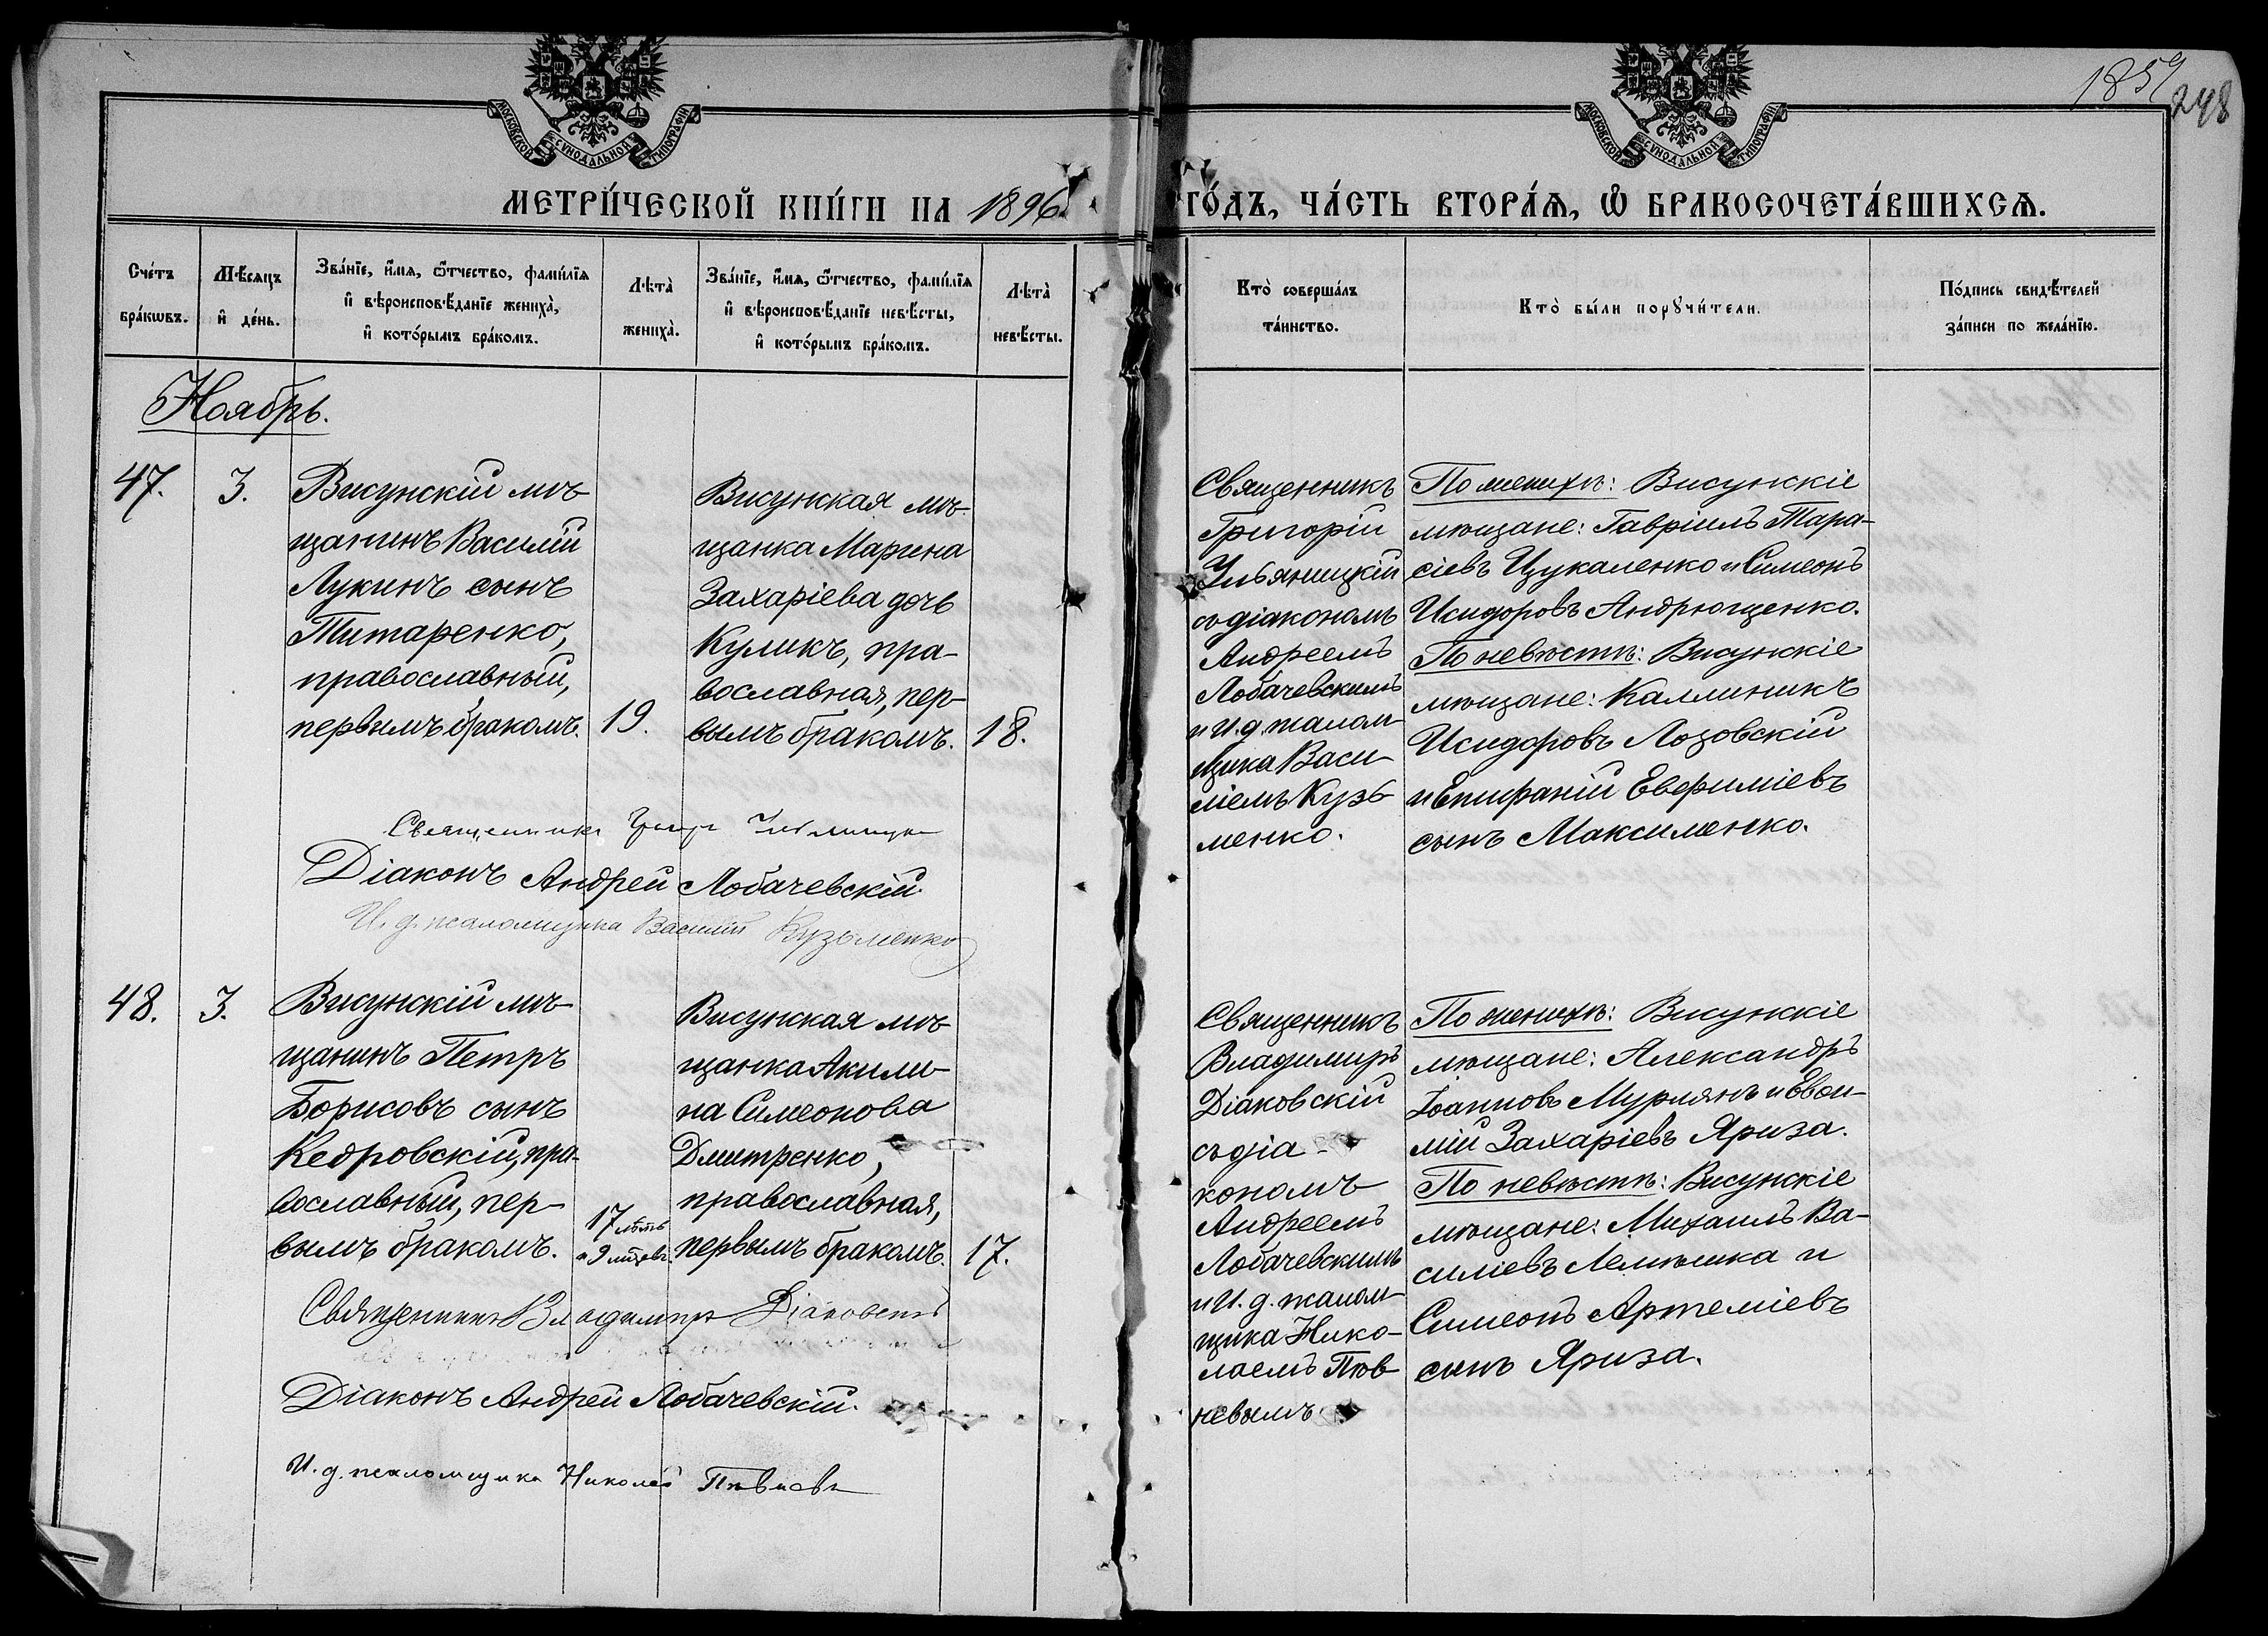 185
248
МОСКОВСКОЙ СУНОДАЛЬНОЙ ТИПОГРАФІИ
МОСКОВСКОЙ СУНОДАЛЬНОЙ ТИПОГРАФІИ
МЕТРИ́ЧЕСКОЙ КНИ́ГИ НА 1896
ГО́ДЪ, ЧА́СТЬ ВТОРА́Я, Ѡ БРАКОСОЧЕТА́ВШИХСЯ.
Сче́тъ
бра́кѡвъ.
Мѣ́сяцъ
и҆ де́нь.
Зва́нїе, и҆́мя, ѻ҆́тчество, фами́лїя
и҆ вѣроисповѣ́данїе жениха̀,
и҆ кото́рымъ бра́комъ.
Лѣта̀
жениха̀.
Зва́нїе, и҆́мя, ѻ҆́тчество, фами́лїя
и҆ вѣроисповѣ́данїе невѣ́сты,
и҆ кото́рымъ бра́комъ.
Лѣта̀
невѣ́сты.
Кто̀ соверша́лъ
та́инство.
Кто̀ бы́ли порꙋчи́тели.
По́дпись свидѣ́телей
за́писи по жела́нїю.
Ноябрь.
47.
3.
Висунскій мѣ-
щанинъ Василій
Лукинъ сынъ
Титаренко,
православный,
первымъ бракомъ.
19.
Висунская мѣ-
щанка Марина
Захаріева дочь
Куликъ, пра-
вославная, пер-
вымъ бракомъ.
18.
Священникъ
Григорій
Ульяницкій
съ діакономъ
Андреемъ
Лобачевскимъ
и И. д. псалом-
щика Васи-
ліемъ Кузь-
менко.
По женихѣ: Висунскіе
мѣщане: Гавріилъ Тара-
сіевъ Цукаленко и Симеонъ
Исидоровъ Андрющенко.
По невѣстѣ: Висунскіе
мѣщане: Каллиникъ
Исидоровъ Лозовскій
и Епифаній Евфиміевъ
сынъ Максименко.
Священникъ
Діаконъ Андрей Лобачевскій.
И. д. псаломщика Василій Кузьменко
48.
3.
Висунскій мѣ-
щанинъ Петръ
Борисовъ сынъ
Кедровскій, пра-
вославный, пер-
вымъ бракомъ.
17 лѣтъ
и 9 мѣсяц.
Висунская мѣ-
щанка Акили-
на Симеонова
Дмитренко,
православная,
первымъ бракомъ.
17.
Священникъ
Владимиръ
Діаковскій
съ діа-
кономъ
Андреемъ
Лобачевскимъ
и И. д. псалом-
щика Нико-
лаемъ Пѣв-
невымъ
По женихѣ: Висунскіе
мѣщане: Александръ
Іоанновъ Мурлянъ и Евѳи-
мій Захаріевъ Яриза.
По невѣстѣ: Висунскіе
мѣщане: Михаилъ Ва-
силіевъ Лемѣшка и
Симеонъ Артеміевъ
сынъ Яриза.
Священникъ Владимиръ Діаковскій
Діаконъ Андрей Лобачевскій.
И. д. псаломщика Николай Пѣвневъ